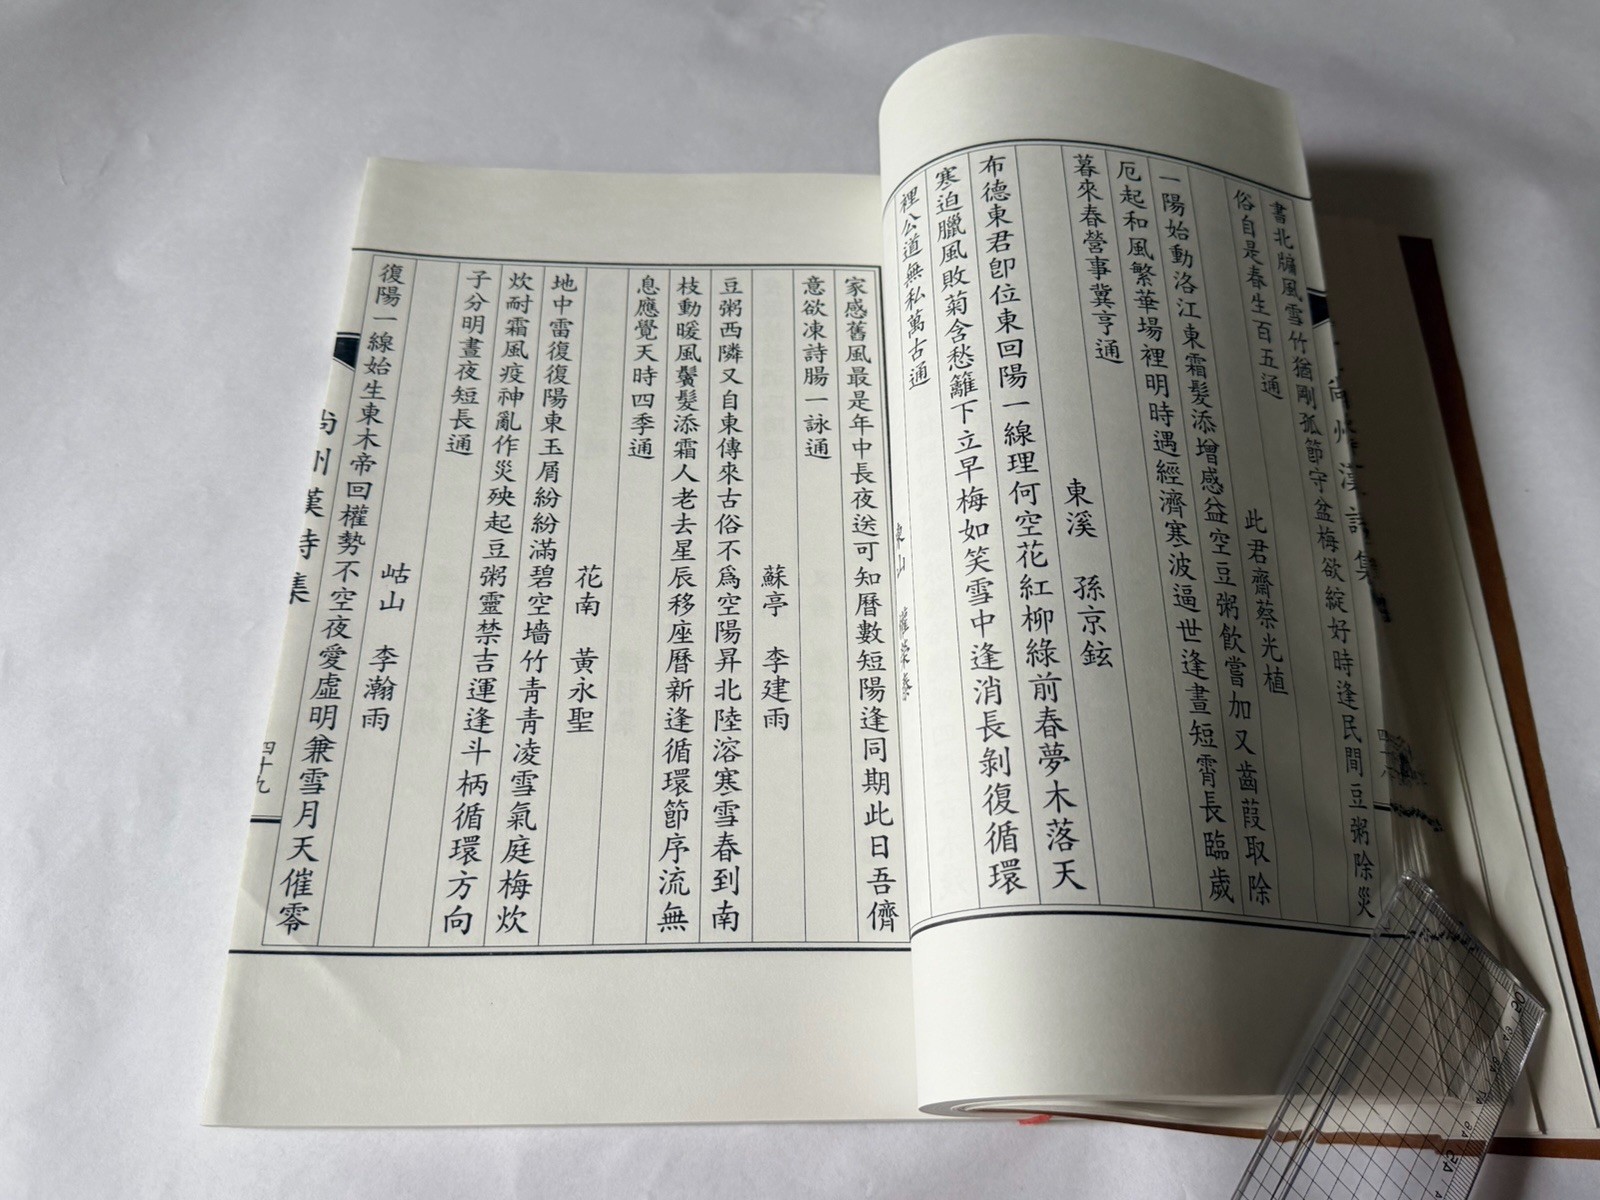 書北牖風雪竹猶剛孤節守盆梅欲綻好時逢民間豆粥除災
俗自是春生百五通
此君齋蔡光植
一陽始動洛江東霜髮添增感益空豆粥飲嘗加又齒葭取除
厄起和風繁華場裡明時遇經濟寒波逼世逢晝短霄長臨歲
暮來春營事冀亨通
東溪 孫京鉉
布德東君卽位東回陽一線理何空花紅柳綠前春夢木落天
寒迫臘風敗菊含愁籬下立早梅如笑雪中逢消長剝復循環
裡公道無私萬古通
家感舊風最是年中長夜送可知曆數短陽逢同期此日吾儕
意欲凍詩腸一詠通
蘇亭 李建雨
豆粥西隣又自東傳來古俗不爲空陽昇北陸溶寒雪春到南
枝動暖風鬢髮添霜人老去星辰移座曆新逢循環節序流無
息應覺天時四季通
花南 黃永聖
地中雷復復陽東玉屑紛紛滿碧空墻竹靑靑凌雪氣庭梅炊
炊耐霜風疫神亂作災殃起豆粥靈禁吉運逢斗柄循環方向
子分明晝夜短長通
岵山 李瀚雨
復陽一線始生東木帝回權勢不空夜愛虛明兼雪月天催零
尚州漢詩集
四十九